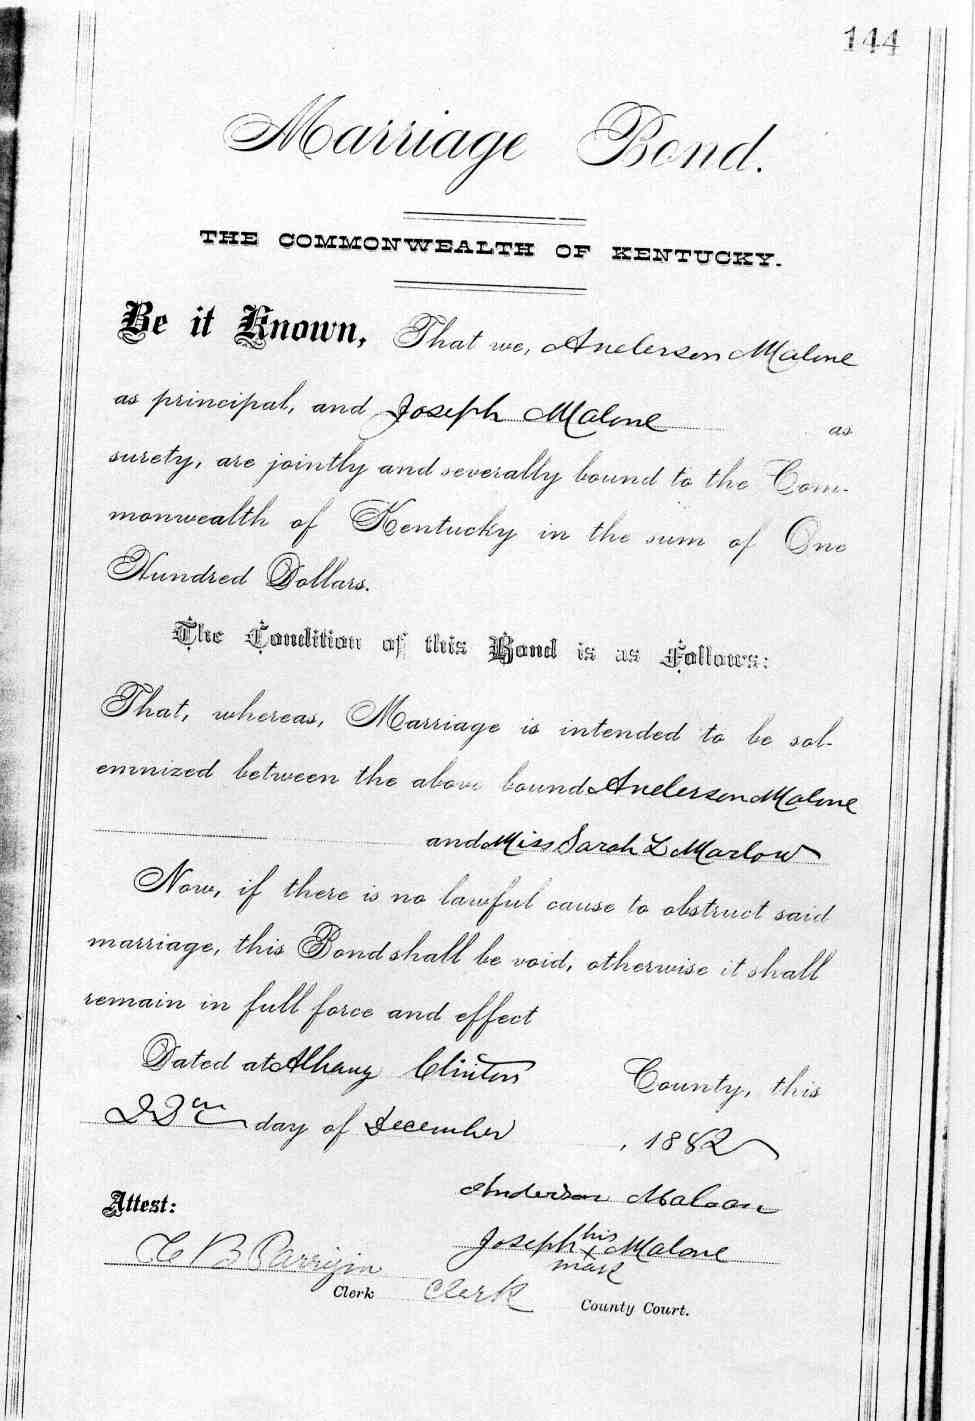 144
Marriage Bond.
THE COMMONWEALTH OF KENTUCKY.
Be it Known, That we, Anderson Malone
as principal, and Joseph Malone as
surety, are jointly and severally bound to the Com-
monwealth of Kentucky in the sum of One
Hundred Dollars.
The Condition of this Bond is as Follows:
That, whereas, Marriage is intended to be sol-
emnized between the above bound Anderson Malone
and Miss Sarah L Marlow
Now, if there is no lawful cause to obstruct said
marriage, this Bond shall be void, otherwise it shall
remain in full force and effect
Dated at Albany Clinton County, this
22 day of December, 1882
Anderson Maloan
Attest:
Joseph his x mark Malone
B Parrigin
Clerk Clerk County Court.